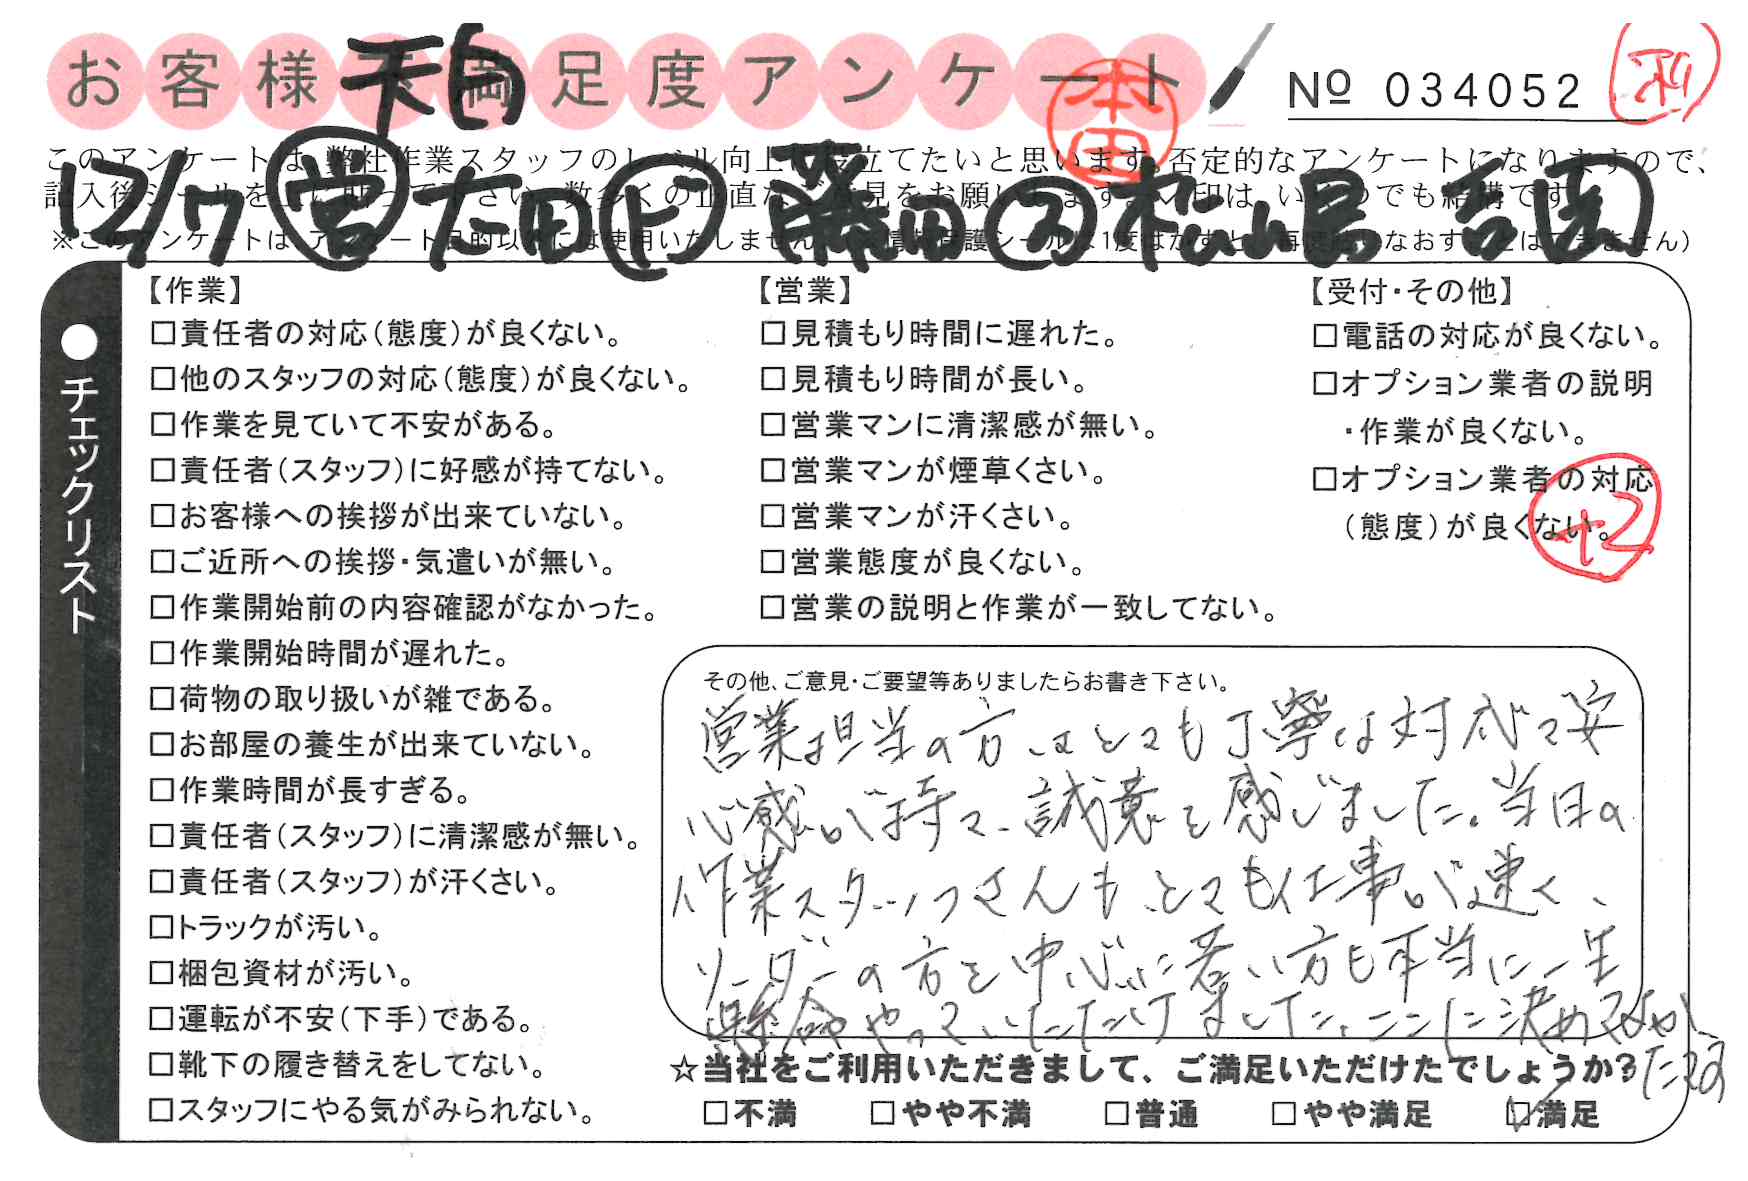 お客様不満足度アンケート
天白
本田
No 034052
このアンケートは、弊社作業スタッフのレベル向上に役立てたいと思います。否定的なアンケートになりますので、
記入後シールを上に貼って下さい。数多くの正直なご意見をお願いします。✓印は、いくつでも結構です。
※このアンケートは、アンケート目的以外には使用いたしません。(※情報保護シールは1度はがすと、再度貼りなおすことはできません)
12/7 営 太田 ド 藤田 ス 松島 吉園
●チェックリスト
【作業】
□責任者の対応(態度)が良くない。
□他のスタッフの対応(態度)が良くない。
□作業を見ていて不安がある。
□責任者(スタッフ)に好感が持てない。
□お客様への挨拶が出来ていない。
□ご近所への挨拶・気遣いが無い。
□作業開始前の内容確認がなかった。
□作業開始時間が遅れた。
□荷物の取り扱いが雑である。
□お部屋の養生が出来ていない。
□作業時間が長すぎる。
□責任者(スタッフ)に清潔感が無い。
□責任者(スタッフ)が汗くさい。
□トラックが汚い。
□梱包資材が汚い。
□運転が不安(下手)である。
□靴下の履き替えをしてない。
□スタッフにやる気がみられない。
【営業】
□見積もり時間に遅れた。
□見積もり時間が長い。
□営業マンに清潔感が無い。
□営業マンが煙草くさい。
□営業マンが汗くさい。
□営業態度が良くない。
□営業の説明と作業が一致してない。
【受付・その他】
□電話の対応が良くない。
□オプション業者の説明
・作業が良くない。
□オプション業者の対応
(態度)が良くない。
+2
その他、ご意見・ご要望等ありましたらお書き下さい。
営業担当の方はとても丁寧な対応で安
心感が持て、誠意を感じました。当日の
作業スタッフさんも、とても仕事が速く、
リーダーの方を中心に若い方も本当に一生
懸命やっていただけました。ここに決めてよか
ったです
☆当社をご利用いただきまして、ご満足いただけたでしょうか?
□不満 □やや不満 □普通 □やや満足 ☑満足